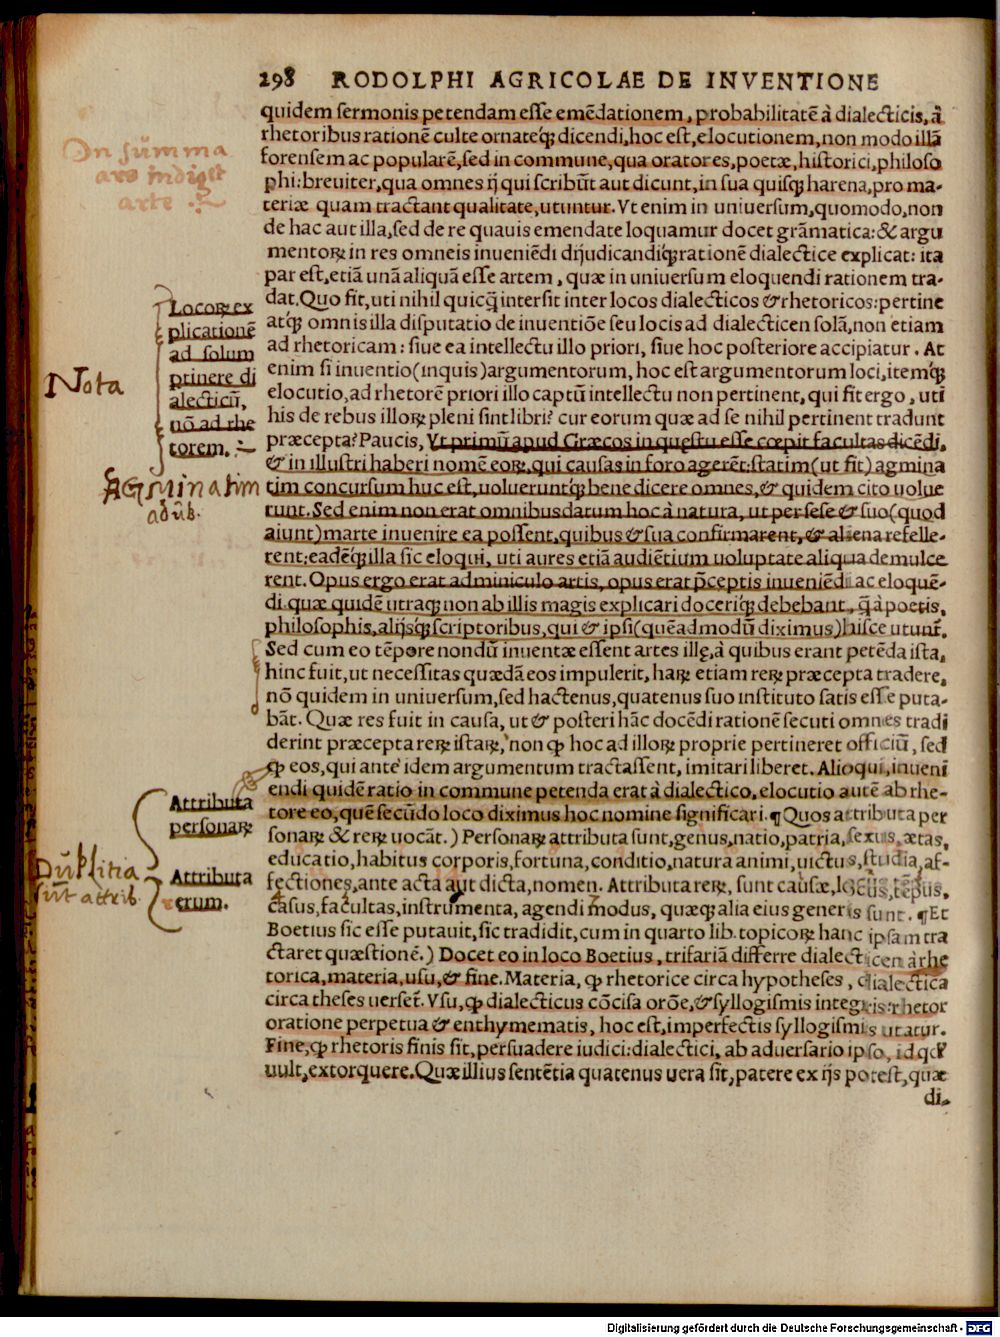 298 RODOLPHI AGRICOLAE DE INVENTIONE
quidem sermonis petendam esse emēdationem, probabilitatē à dialecticis, à
rhetoribus rationē culte ornateq́ꝫ dicendi, hoc est, elocutionem, non modo illā
forensem ac popularē, sed in commune, qua oratores, poetæ, historici, philoso
phi: breuiter, qua omnes ij qui scribūt aut dicunt, in sua quisqꝫ harena, pro ma-
teriæ quam tractant qualitate, utuntur. Vt enim in uniuersum, quomodo, non
de hac aut illa, sed de re quauis emendate loquamur docet grāmatica: & argu
mentoꝝ in res omneis inueniēdi dijudicandiq́ꝫ rationē dialectice explicat: ita
par est, etiā unā aliquā esse artem, quæ in uniuersum eloquendi rationem tra-
dat. Quo fit, uti nihil quicq̄ intersit inter locos dialecticos & rhetoricos: pertine
atq́ꝫ omnis illa disputatio de inuentiōe seu locis ad dialecticen solā, non etiam
ad rhetoricam: siue ea intellectu illo priori, siue hoc posteriore accipiatur. At
enim si inuentio (inquis) argumentorum, hoc est argumentorum loci, itemq́ꝫ
elocutio, ad rhetorē priori illo captū intellectu non pertinent, qui fit ergo, uti
his de rebus illoꝝ pleni sint libri? cur eorum quæ ad se nihil pertinent tradunt
præcepta? Paucis, Vt primū apud Græcos in quęstu esse cœpit facultas dicēdi,
& in illustri haberi nomē eoꝝ, qui causas in foro agerēt: statim (ut fit) agmina
tim concursum huc est, uolueruntq́ꝫ bene dicere omnes, & quidem cito uolue
runt. Sed enim non erat omnibus datum hoc à natura, ut per sese & suo (quod
aiunt) marte inuenire ea possent, quibus & sua confirmarent, & aliena refelle-
rent: eadēq́ꝫ illa sic eloqui, uti aures etiā audiētium uoluptate aliqua demulce
rent. Opus ergo erat adminiculo artis, opus erat p̄ceptis inueniēdi ac eloquē-
di. quæ quidē utraqꝫ non ab illis magis explicari doceriq́ꝫ debebant, q̄ à poetis,
philosophis, alijsq́ꝫ scriptoribus, qui & ipsi (quēadmodū diximus) hisce utunt̃.
Sed cum eo tēpore nondū inuentæ essent artes illę, à quibus erant petēda ista,
hinc fuit, ut necessitas quædā eos impulerit, haꝝ etiam reꝝ præcepta tradere,
nō quidem in uniuersum, sed hactenus, quatenus suo instituto satis esse puta-
bāt. Quæ res fuit in causa, ut & posteri hāc docēdi rationē secuti omnes tradi
derint præcepta reꝝ istaꝝ, non ꝙ hoc ad illoꝝ proprie pertineret officiū, sed
ꝙ eos, qui ante idem argumentum tractassent, imitari liberet. Alioqui, inueni
endi quidē ratio in commune petenda erat à dialectico, elocutio autē ab rhe-
tore eo, quē secūdo loco diximus hoc nomine significari. ¶ Quos attributa per
sonaꝝ & reꝝ uocāt.) Personaꝝ attributa sunt, genus, natio, patria, sexus, ætas,
educatio, habitus corporis, fortuna, conditio, natura animi, uictus, studia, af-
fectiones, ante acta aut dicta, nomen. Attributa reꝝ, sunt causæ, locus, tēpus,
casus, facultas, instrumenta, agendi modus, quæqꝫ alia eius generis sunt. ¶ Et
Boetius sic esse putauit, sic tradidit, cum in quarto lib. topicoꝝ hanc ipsam tra
ctaret quæstionē.) Docet eo in loco Boetius, trifariā differre dialecticen à rhe
torica, materia, usu, & fine. Materia, ꝙ rhetorice circa hypotheses, dialectica
circa theses uerset̃. Vsu, ꝙ dialecticus cōcisa orōe, & syllogismis integris: rhetor
oratione perpetua & enthymematis, hoc est, imperfectis syllogismis utatur.
Fine, ꝙ rhetoris finis sit, persuadere iudici: dialectici, ab aduersario ipso, id qd́
uult, extorquere. Quæ illius sentētia quatenus uera sit, patere ex ijs potest, quæ
di-
On summa
ars indiget
arte
Locoꝝ ex
plicationē
ad solum
ptinere di
alecticū,
nō ad rhe
torem.
Nota
AGminatim
adūb.
Attributa
personaꝝ
Duplitia
sūt attrib.
Attributa
rerum.
Digitalisierung gefördert durch die Deutsche Forschungsgemeinschaft - DFG